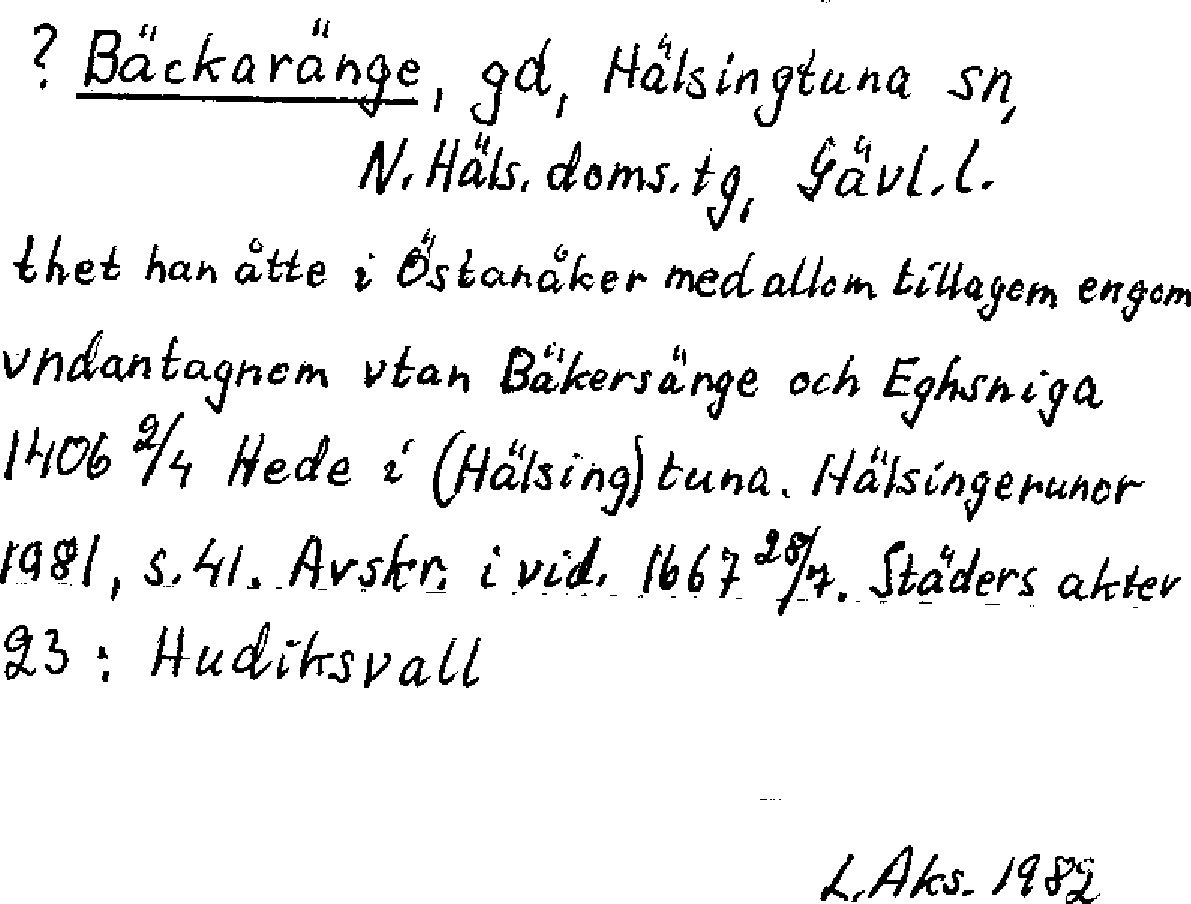 ? Bäckaränge, gd, Hälsingtuna sn,
N. Häls. doms. tg, Gävl. l.
thet han åtte i Östanåker med allom tillagom engom
vndantagnom vtan Bäkersänge och Eghsniga
1406 2/4 Hede i (Hälsing)tuna. Hälsingerunor
1981, s. 41. Avskr. i vid. 1667 28/7. Städers akter
23: Hudiksvall
L. Aks. 1982